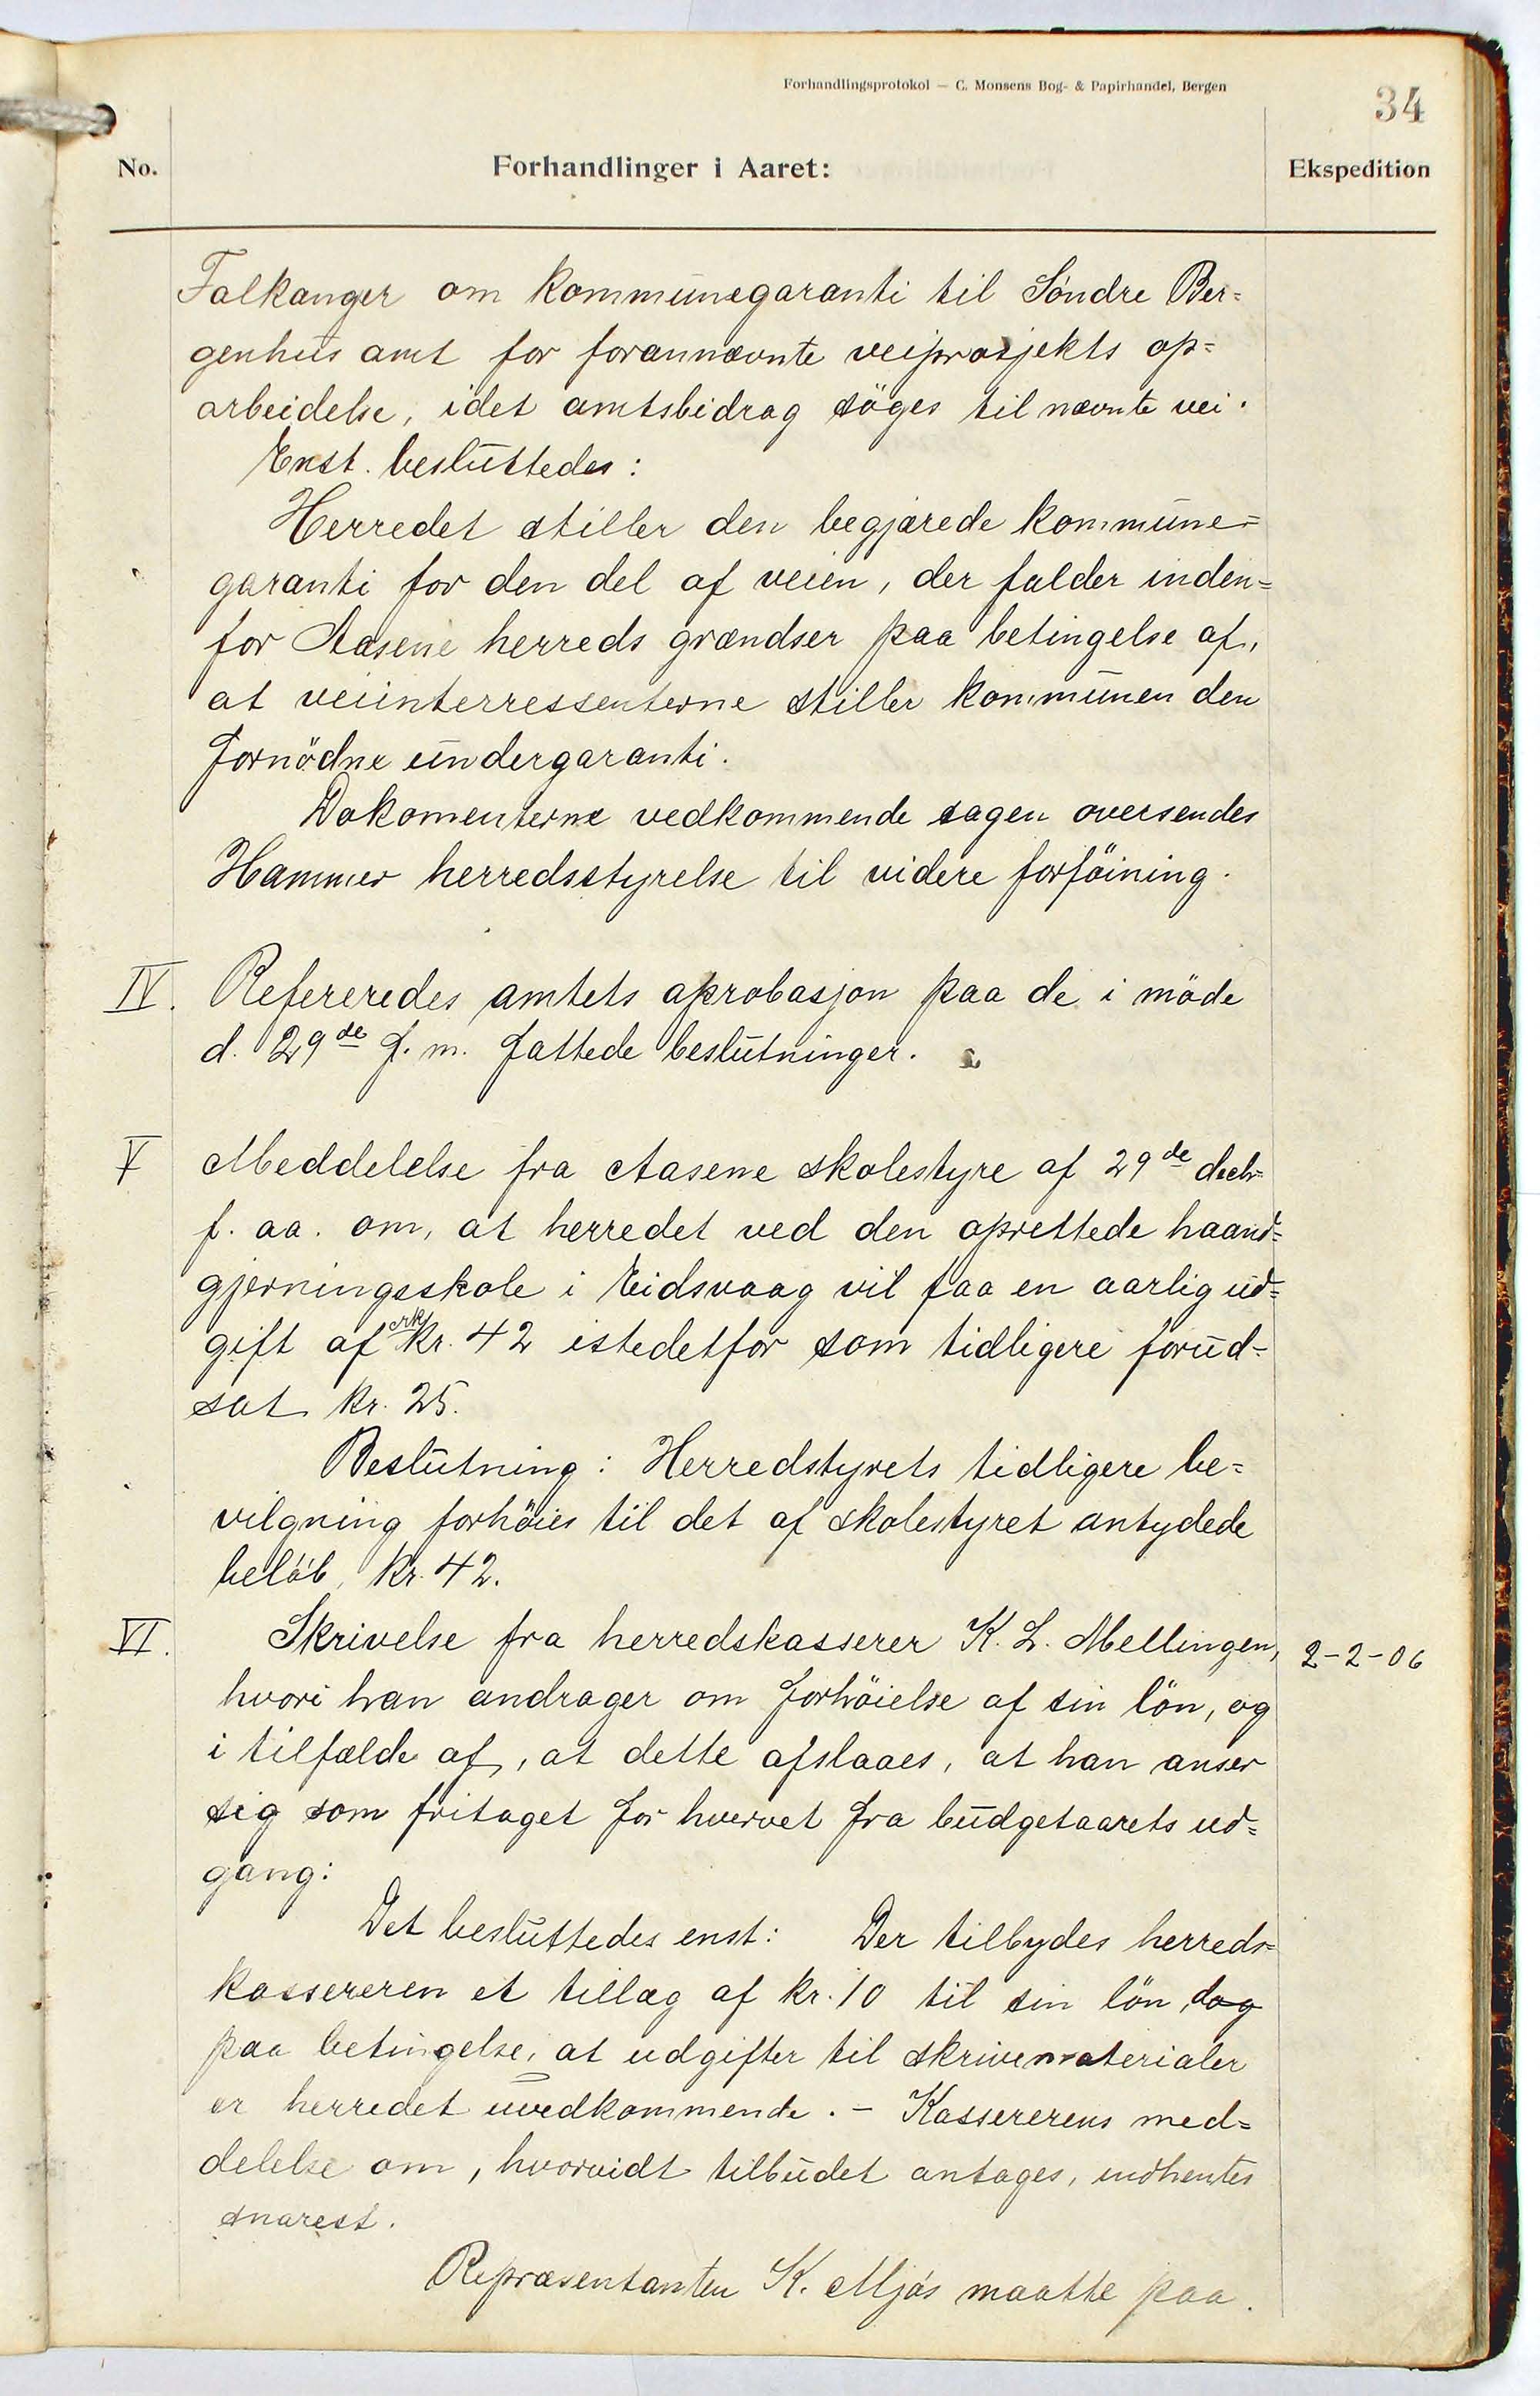 Forhandlingsprotokol — C. Monsens Bog- & Papirhandel, Bergen
34
No. Forhandlinger i Aaret: Ekspedition
Falkanger om kommunegaranti til Söndre Ber=
genhus amt for forannævnte veiprosjekts op=
arbeidelse, idet amtsbidrag söges til nævnte vei.
Enst. besluttedes:
Herredet stiller den begjærede kommune=
garanti for den del af veien, der falder inden=
for Aasene herreds grændser paa betingelse af,
at veiinterressenterne stiller kommunen den
fornödne undergaranti.
Dokomenterne vedkommende sagen oversendes
Hammer herredsstyrelse til videre forföining.
IV. Refereredes amtets aprobasjon paa de i möde
d. 29de f. m. fattede beslutninger.
V Meddelelse fra Aasene skolestyre af 29de decbr
f. aa. om, at herredet ved den oprettede haand=
gjerningsskole i Eidsvaag vil faa en aarlig ud=
gift af crk kr. 42 istedetfor som tidligere forud=
sat kr. 25.
Beslutning: Herredstyrets tidligere be=
vilgning forhöies til det af skolestyret antydede
belöb, kr. 42.
VI. Skrivelse fra herredskasserer K. L. Mellingen, 2-2-06
hvori han andrager om forhöielse af sin lön, og
i tilfælde af, at dette afslaaes, at han anser
sig som fritaget for hvervet fra budgetaarets ud=
gang:
Det besluttedes enst: Der tilbydes herreds=
kassereren et tillæg af kr. 10 til sin lön, dog
paa betingelse, at udgifter til skrivematerialer
er herredet uvedkommende. – Kassererens med=
delelse om, hvorvidt tilbudet antages, indhentes
snarest.
Repræsentanten K. Mjös maatte paa.